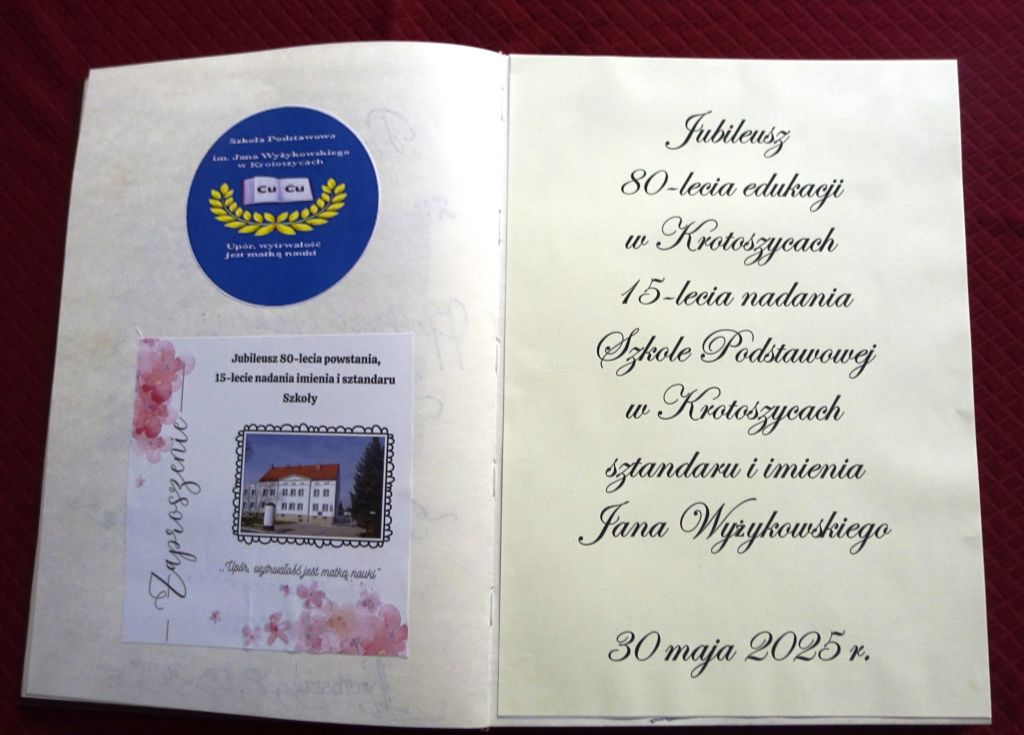 Szkoła Podstawowa
im. Jana Wyżykowskiego
w Krotoszycach
Cu Cu
Upór, wytrwałość
jest matką nauki
Zaproszenie
Jubileusz 80-lecia powstania,
15-lecie nadania imienia i sztandaru
Szkoły
,,Upór, wytrwałość jest matką nauki"
Jubileusz
80-lecia edukacji
w Krotoszycach
15-lecia nadania
Szkole Podstawowej
w Krotoszycach
sztandaru i imienia
Jana Wyżykowskiego
30 maja 2025 r.